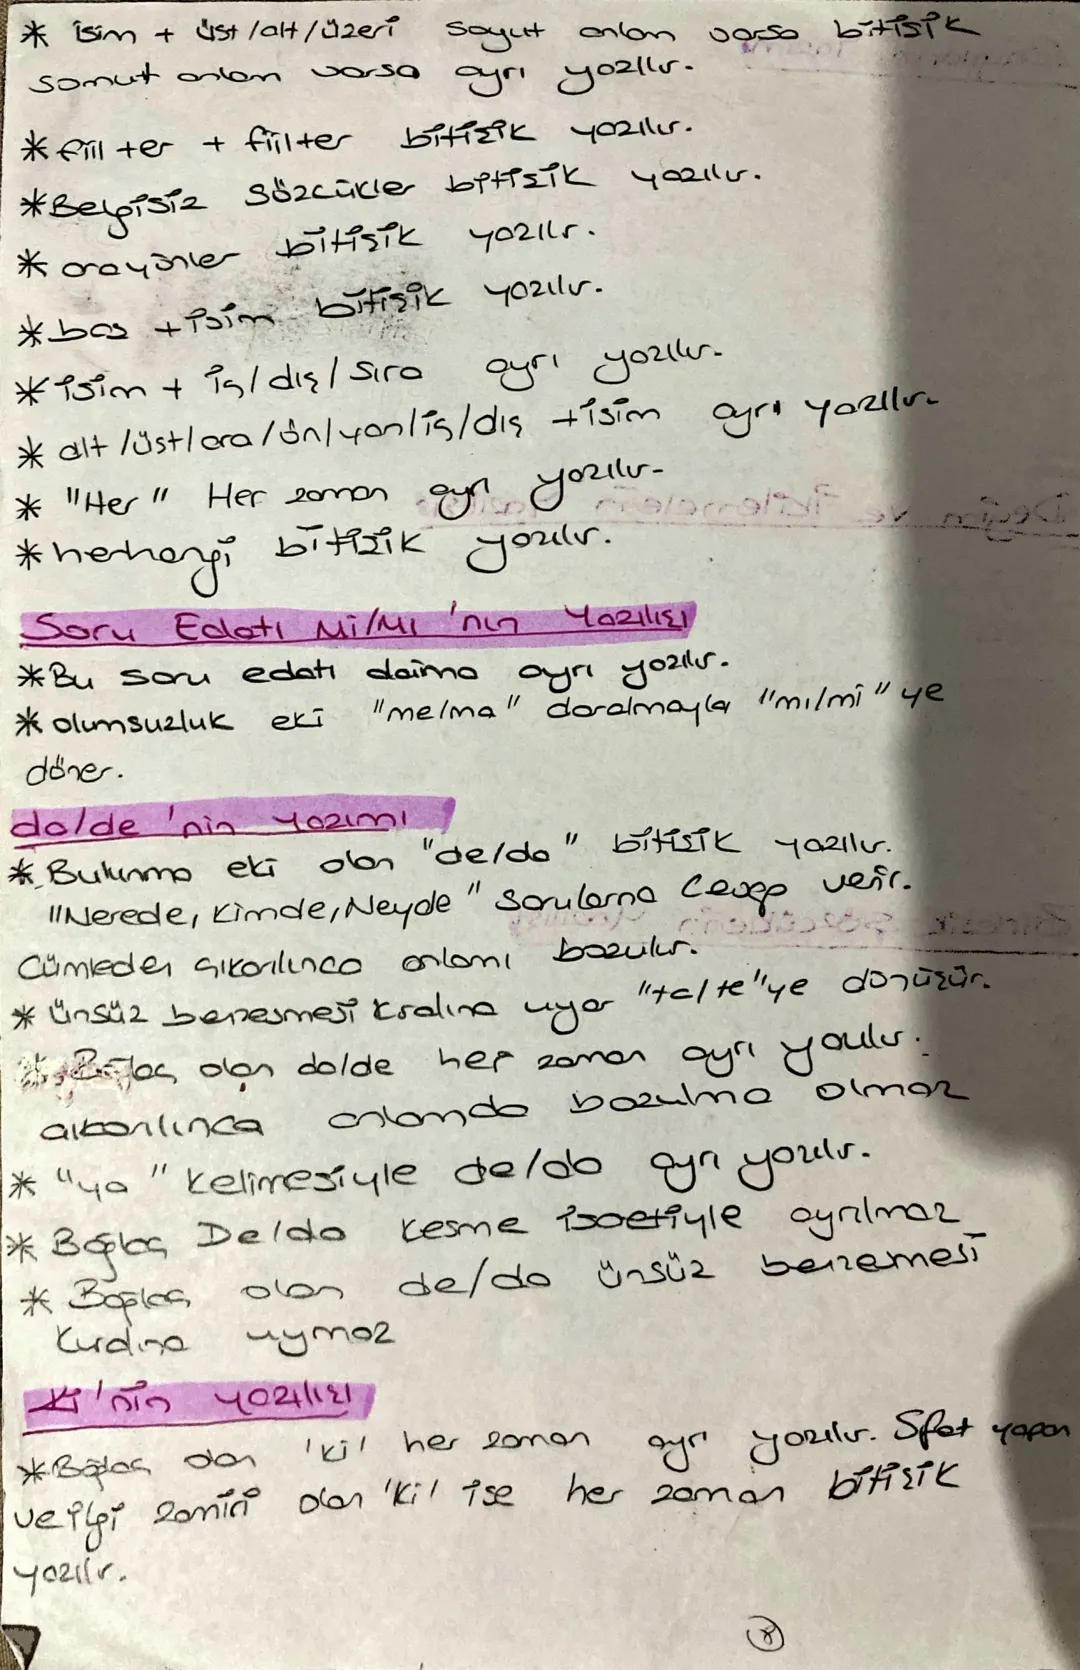 * isim + üst/alt/üzeri soyut anlam varsa bitişik
somut anlam varsa ayrı yazılır.
* fiiller + fiiller bitişik yazılır.
* Belgisiz sözcükler bitişik yazılır.
* arayönler bitişik yazılır.
* baş + isim bitişik yazılır.
* isim + iç/dış/sıra ayrı yazılır.
* alt/üst/ara/ön/yan/iç/dış + isim ayrı yazılır.
* "Her" Her zaman ayrı yazılır.
* herhangi bitişik yazılır.
Soru Edatı Mi/Mı 'nın Yazılışı
* Bu soru edatı daima ayrı yazılır.
* olumsuzluk eki "me/ma" daralmayla "mı/mi" ye
döner.
da/de 'nin yazımı
* Bulunma eki olan "de/da" bitişik yazılır.
"Nerede, Kimde, Neyde" sorularına cevap verir.
Cümleden çıkarılınca anlamı bozulur.
* Ünsüz benzemesi kralına uyar "ta/te"ye dönüşür.
* Bağlaç olan da/de her zaman ayrı yazılır.
çıkarılınca anlamda bozulma olmaz
* "ya" kelimesiyle de/da ayrı yazılır.
* Bağlaç De/da kesme işaetiyle ayrılmaz
* Bağlaç olan de/da ünsüz benzemesi
kurdına uymaz
Ki'nin yazılışı
* Bağlaç olan 'ki' her zaman ayrı yazılır. Sıfat yapan
ve ilgi zamiri olan 'ki' ise her zaman bitişik
yazılır.